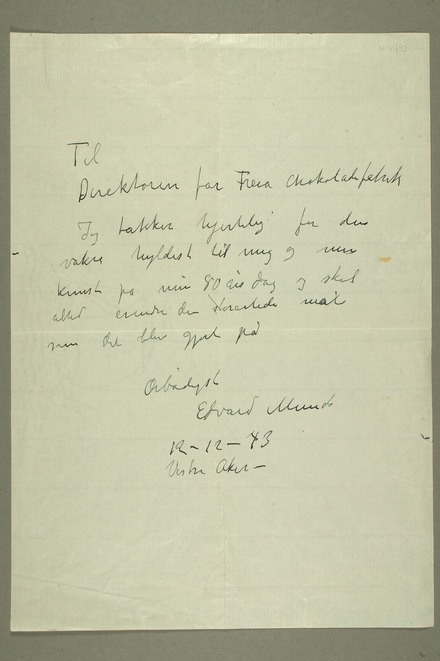 Til
Direktøren for Freia Chokoladefabrik
Jeg takker hjertelig for den
vakre hyldest til mig og min
kunst på min 80 års dag og skal
altid erindre den storartede måt
som det blev gjort på
Ærbødigst
Edvard Munch
12–12–43
Vestre Aker –